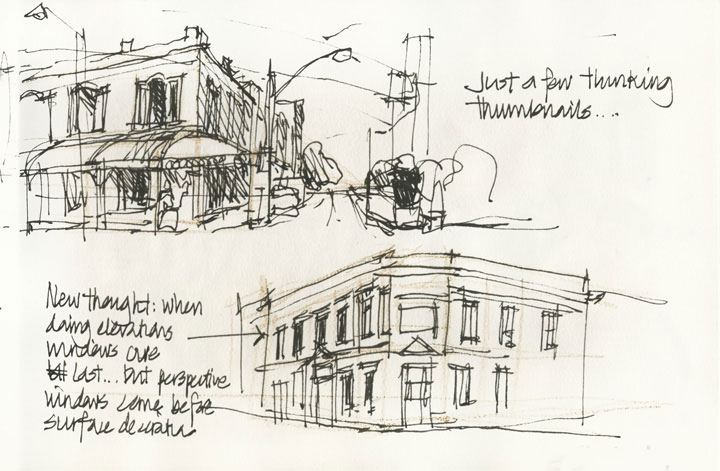 Just a few thinking
thumbnails....
New thought: when
doing elevations
windows are
last... but perspective
windows come before
surface decoration